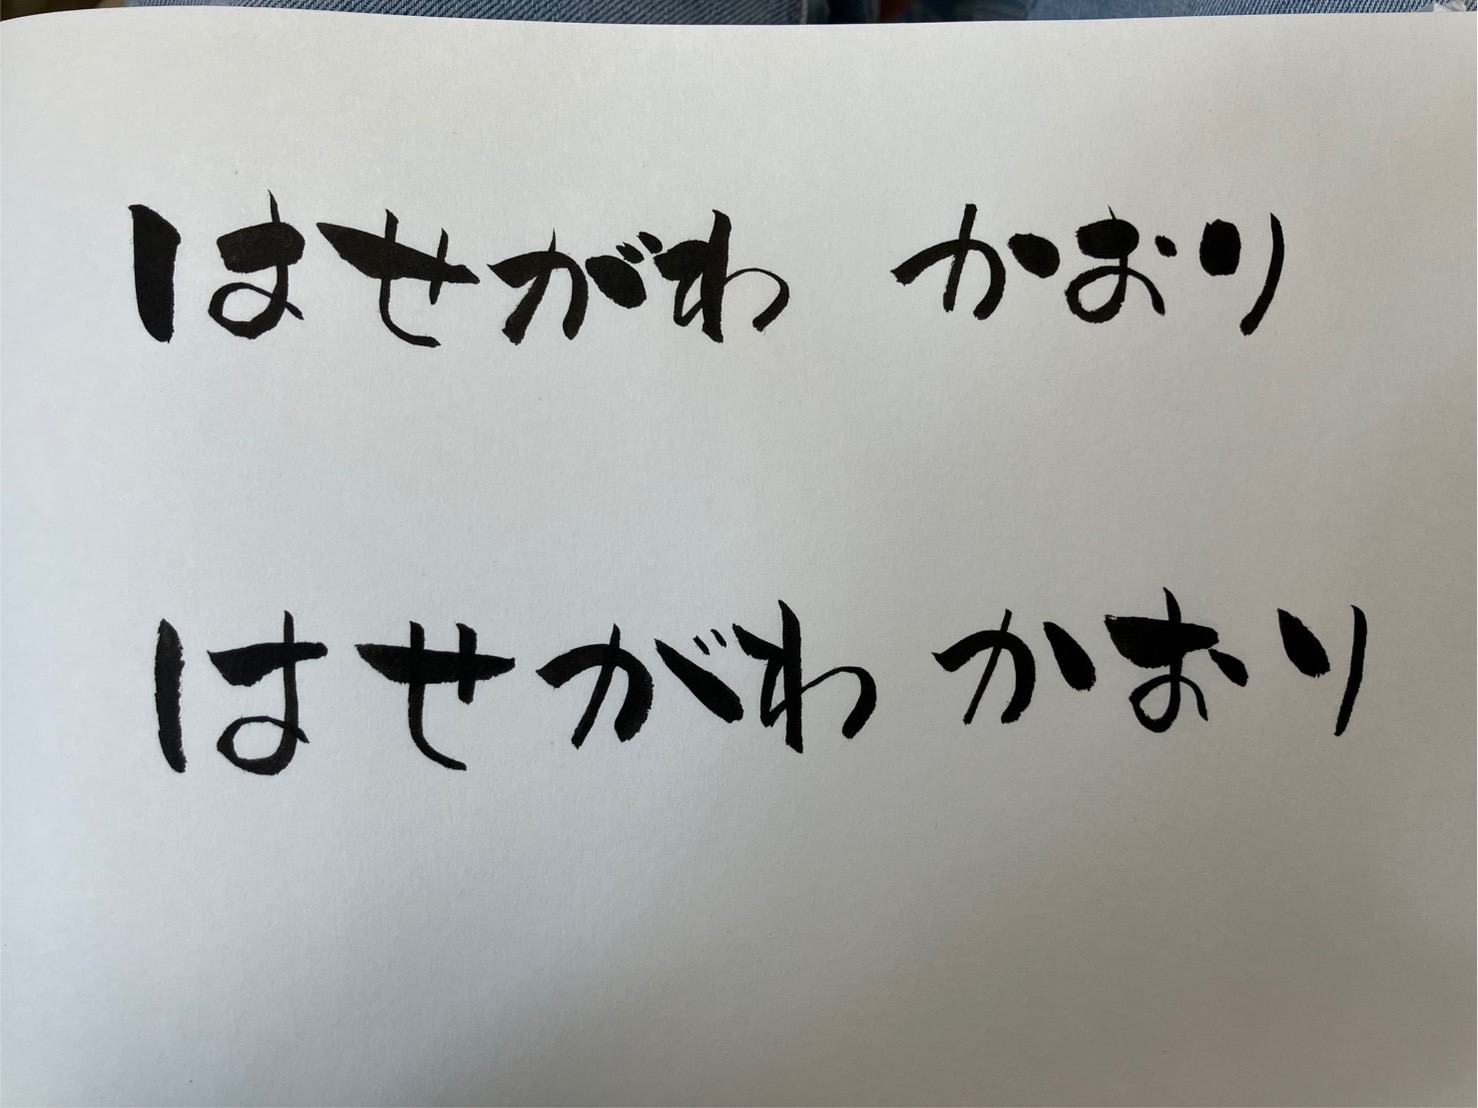 はせがわ かおり
はせがわ かおり